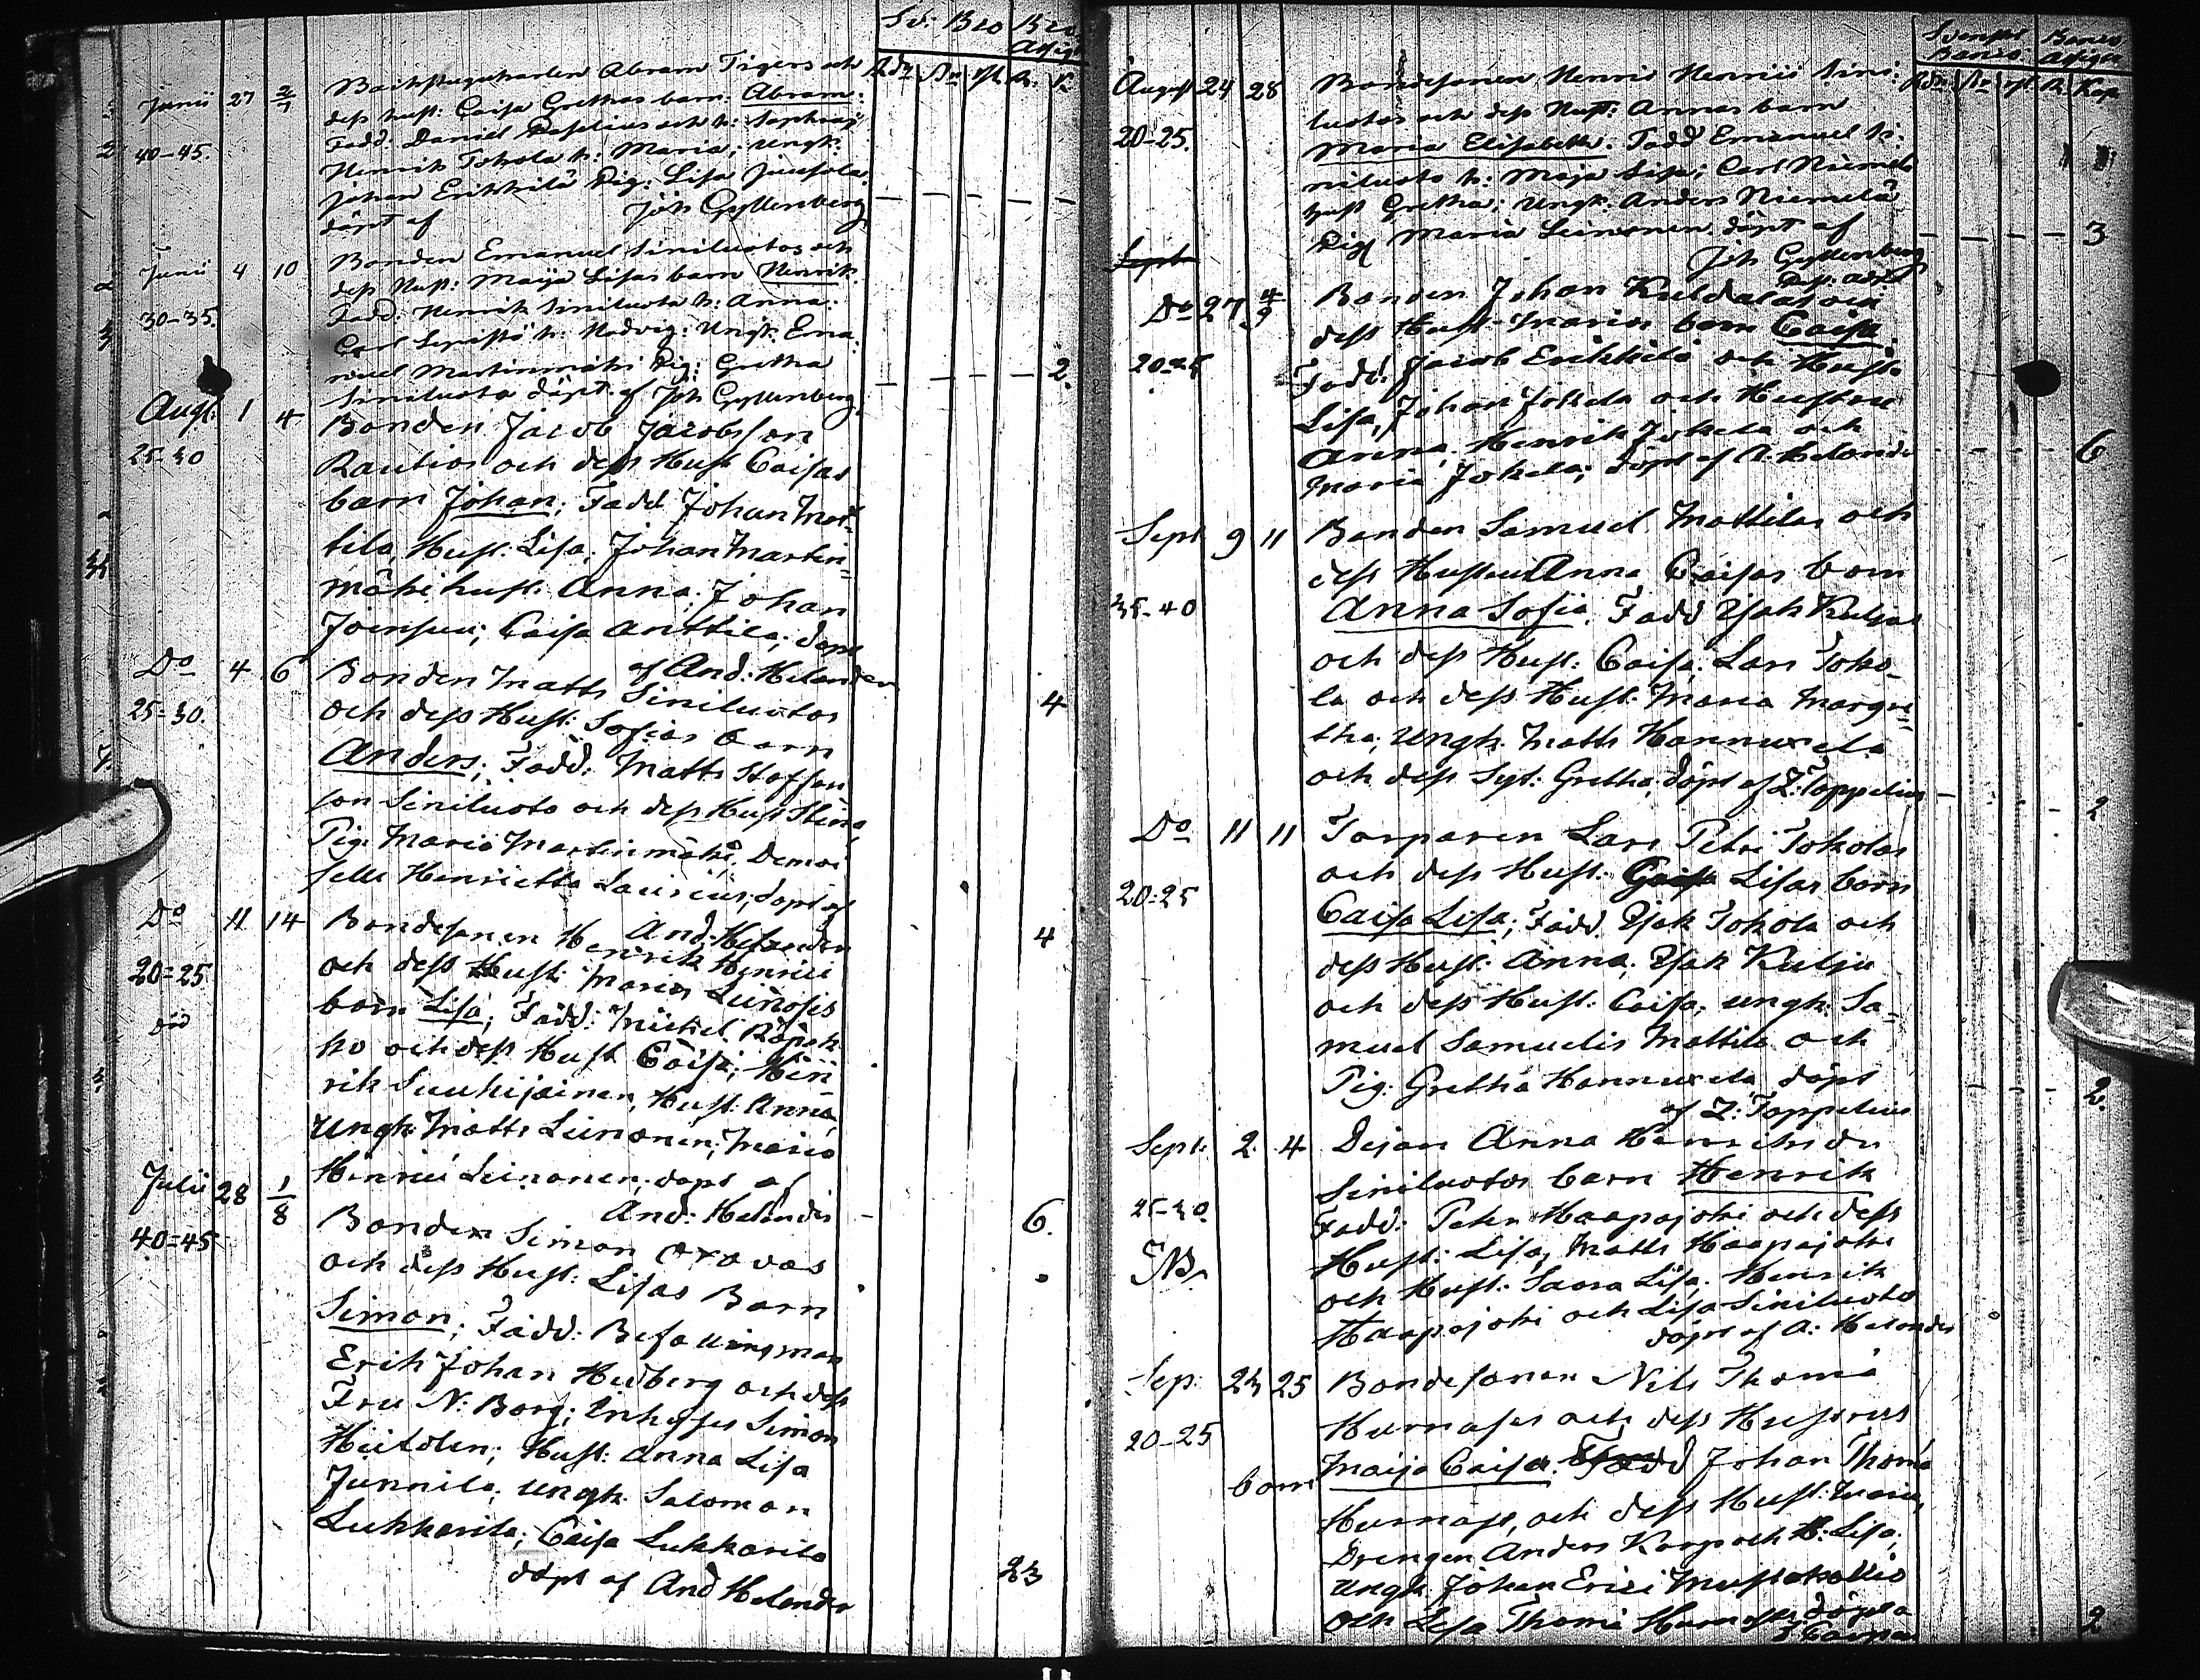 Sv: Bco Bco
Assign
Junii 27 2/7 Abram Tigers och
dess hust: Caisa Grethas barn: Abram:
40-45. Fadd: Daniel och h:
Henrik Tokola h: Maria; Ungk:
Johan Erikkilä Pig: Lisa Juusola.
döpt af Joh Gyllenberg
Junii 4 10 Bonden Emanuel Siniluotos och
dess Hust: Maija Lisas barn Henrik.
30-35. Fadd: Henrik Siniluoto h: Anna:
Carl h: Hedvig: Ungk. Ema-
nuel Martinmäki Pig: Gretha
Siniluoto döpt af Joh Gyllenberg. 2.
Aug: 1 4 Bonden Jacob Jacobsson
25-30 Rautios och dess Hust Caisas
barn Johan; Fadd Johan Mar-
tila, Hust: Lisa; Johan Martin-
mäki hust: Anna; Johan
Joensuu; Caisa Anttila; döpt
af And: Helander 4
Do 4 6 Bonden Matts Siniluotos
25-30. och dess Hust: Sofias barn
Anders; Fadd: Matts Staffan
son Siniluoto och dess Hust Stina
Pig: Maria Martinmäki, Demoi
selle Henrietta Laurius; döpt af
And: Helander 4
Do 11 14 Bondesonen Henrik Henrici
20=25 och dess Hust: Marias Leinosis
död barn Lisa; Fadd: Michel
ko och dess Hust Caisa; Hen
rik Suuhijainen, Hust: Anna,
Ungk: Matts Leinonen; Maria
Henrici Leinonen; döpt af
And: Helander 6.
Julii 28 1/8 Bonden Simon Oravas
40=45 och dess Hust: Lisas Barn
Simon; Fadd: Befallningsman
Erik Johan Hedberg och dess
Fru N: Borg; Inhyses Simon
Hietolen; Hust: Anna Lisa
Junnila; Ungk. Salomon
Lukkarila; Caisa Lukkarila
döpt af And Helander 23
Svenskt Banco Banco Assigna
Rdr Kop
August 24 28 Bondesonen Henric Henrici Sini-
luotos och dess Hust: Annas barn
20-25. Maria Elisabeth: Fadd Emanuel Si-
niluoto h: Maja Lisa; Carl Niemelä
hust Gretha; Ungk: Anders Niemelä
Pig Maria Leinonen döpt af 3
Joh Gyllenberg
Sept
Do 27 4/9 Bonden Johan och
dess Hust: Marias barn Caisa
20-25 Fadd: Jacob Erikkilä och Hust:
Lisa, Johan Jokela och Hustru
Anna, Henrik Jokela och
Maria Jokela; döpt af A: Helander 6
Sept 9 11 Bonden Samuel Mattilas och
dess Hustru Anna Caisas barn
35-40 Anna Sofia. Fadd Isak Kulju
och dess Hust: Caisa; Lars Toko-
la och dess Hust: Maria Margre-
tha; Ungk: Matts Hannuxela
och dess Syst: Gretha; döpt af Z: Toppelius 2
Do 11 11 Torparen Lars Petri Tokolas
och dess Hust: Lisas barn
20-25 Caisa Lisa; Fadd. Isak Tokola och
dess Hust: Anna; Isak Kulju
och dess Hust: Caisa; ungk: Sa-
muel Samuelis Mattila och
Pig: Gretha Hannuxela döpt 2.
af Z: Toppelius
Sept: 2. 4 Dejan Anna
Siniluotos barn Henrik
25-30. Fadd: Peter Haapajoki och dess
NB. Hust: Lisa; Matts Haapajoki
och Hust: Saara Lisa. Henrik
Haapajoki och Lisa Siniluoto
döpt af A: Helander
Sep: 23 25 Bondesonen Nils Thomæ
Hurnases och dess Hustrus
20-25 barn Maija Caisa. Fadd Johan Thomæ
Hurnass, och dess Hust: Maria,
Drengen Anders Karp och H: Lisa;
Ungk. Johan Erici
och Lisa Thomæ döpt
2